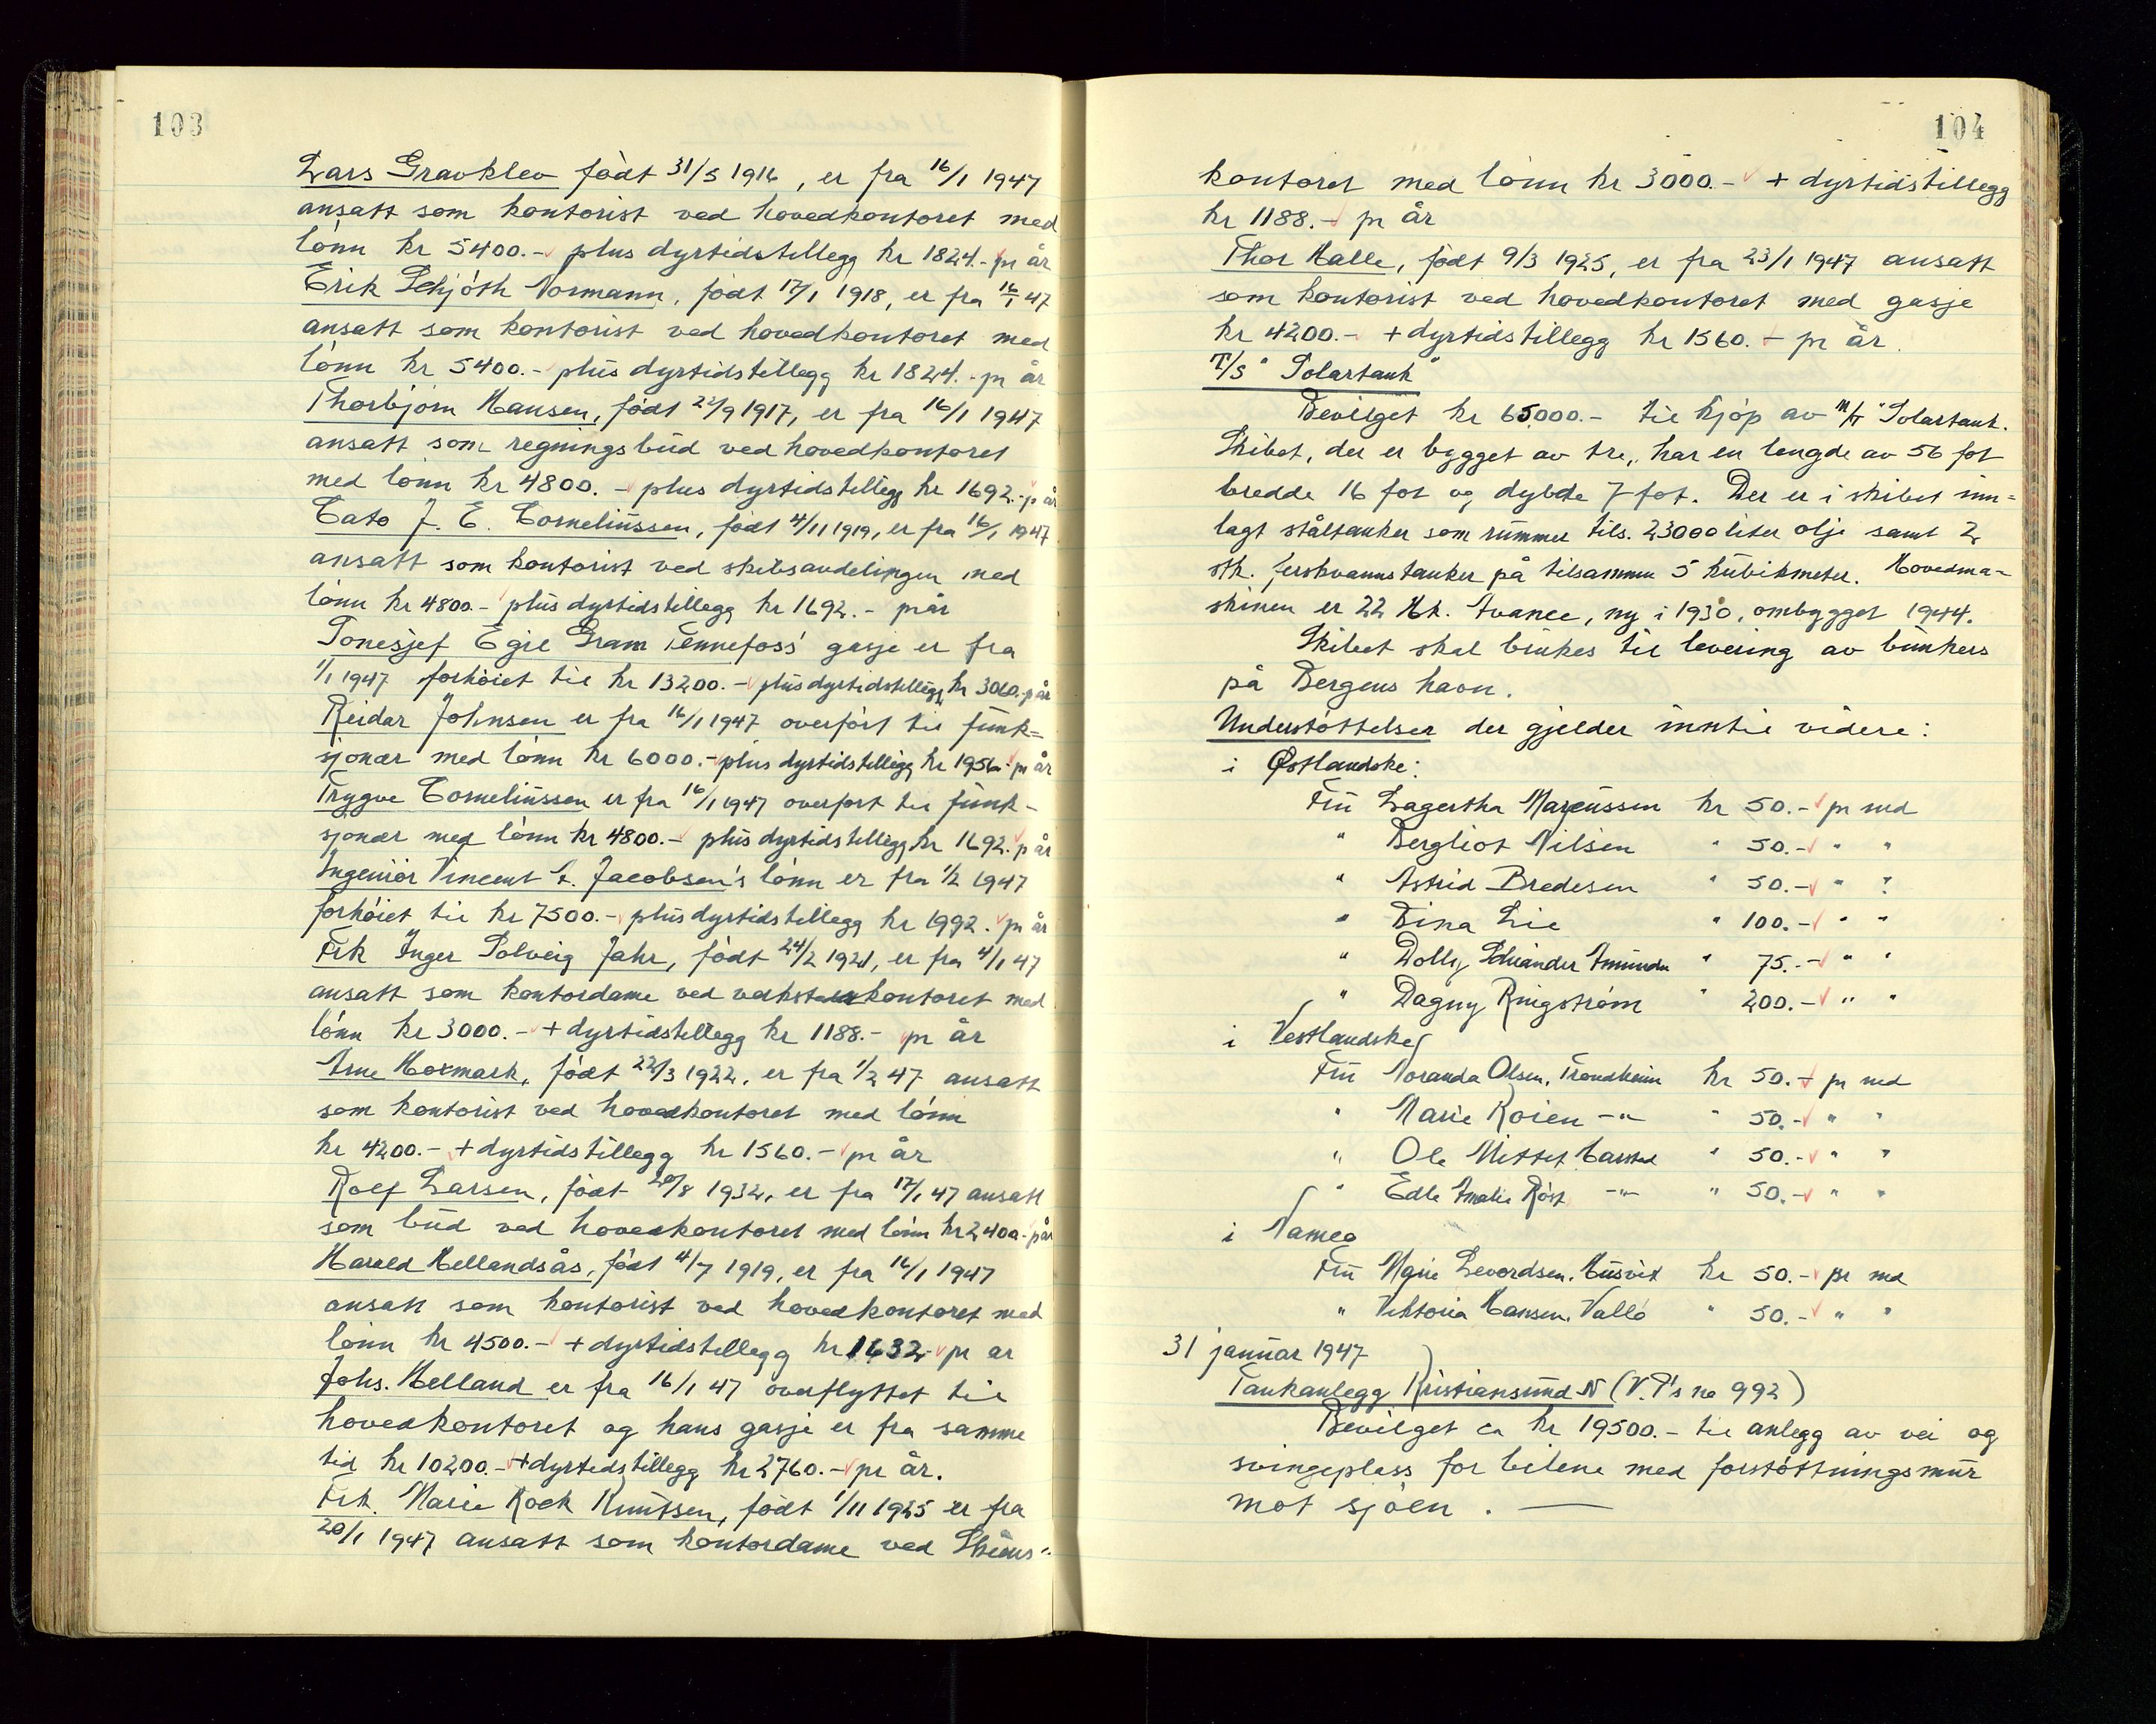 103
Lars Gravklev født 31/5 1916, er fra 16/1 1947
ansatt som kontorist ved hovedkontoret med
lönn kr 5400.- plus dyrtidstillegg kr 1824.- pr år
Erik Schjöth Normann, født 17/1 1918, er fra 16/1 47
ansatt som kontorist ved hovedkontoret med
lönn kr 5400.- plus dyrtidstillegg kr 1824.- pr år
Thorbjörn Hansen, født 22/9 1917, er fra 16/1 1947
ansatt som regningsbud ved hovedkontoret
med lönn kr 4800.- plus dyrtidstillegg kr 1692.- p år
Cato J. E. Corneliussen, født 4/11 1919, er fra 16/1 1947
ansatt som kontorist ved skibsavdelingen med
lönn kr 4800.- plus dyrtidstillegg kr 1692.- pr år
Sonesjef Egil Gram Tennefoss' gasje er fra
1/1 1947 forhöiet til kr 13200.- plus dyrtidstillegg kr 3060. p år
Reidar Johnsen er fra 16/1 1947 overfört til funk=
sjonær med lönn kr 6000.- plus dyrtidstillegg kr 1956.- pr år
Trygve Corneliussen er fra 16/1 1947 overfört til funk-
sjonær med lönn kr 4800.- plus dyrtidstillegg kr 1692. p år
Ingeniör Vincent A. Jacobsen's lönn er fra 1/2 1947
forhöiet til kr 7500.- plus dyrtidstillegg kr 1992. pr år
Frk Inger Solveig Jahr, født 24/2 1921, er fra 4/1 47
ansatt som kontordame ved verkstedkontoret med
lönn kr 3000.- + dyrtidstillegg kr 1188.- pr år
Arne Hoxmark, født 22/3 1922, er fra 1/2 47 ansatt
som kontorist ved hovedkontoret med lönn
kr 4200.- + dyrtidstillegg kr 1560.- pr år
Rolf Larsen, født 20/8 1932, er fra 17/1 47 ansatt
som bud ved hovedkontoret med lönn kr 2400.- p år
Harald Hellandsås, født 4/7 1919, er fra 16/1 1947
ansatt som kontorist ved hovedkontoret med
lönn kr 4500.- + dyrtidstillegg kr 1632.- pr år
Johs. Helland er fra 16/1 47 overflyttet til
hovedkontoret og hans gasje er fra samme
tid kr 10200.- + dyrtidstillegg kr 2760.- pr år.
Frk. Marie Rock Knutsen, født 1/11 1925 er fra
20/1 1947 ansatt som kontordame ved Skiens-
104
kontoret med lönn kr 3000.- + dyrtidstillegg
kr 1188.- pr år
Thor Halle, født 9/3 1925, er fra 23/1 1947 ansatt
som kontorist ved hovedkontoret med gasje
kr 4200.- + dyrtidstillegg kr 1560.- pr år.
T/S "Solartank"
Bevilget kr 65000.- til kjöp av M/T "Solartank.
Skibet, der er bygget av tre, har en lengde av 56 fot
bredde 16 fot og dybde 7 fot. Der er i skibet inn=
lagt ståltanker som rummer tils. 23000 liter olje samt 2
stk. ferskvannstanker på tilsammen 5 kubikmeter. Hovedma=
skinen er 22 Hk. Avance, ny i 1930, ombygget 1944.
Skibet skal brukes til levering av bunkers
på Bergens havn.
Understöttelser der gjelder inntil videre:
i Østlandske:
Fru Lagertha Marcussen kr 50.- pr md
" Bergliot Nilsen " 50.- " "
" Astrid Bredesen " 50.- " "
" Dina Lie " 100.- " "
" Dolly Amunda " 75.- " "
" Dagny Ringström " 200.- " "
i Vestlandske
Fru Noranda Olsen, Trondheim kr 50.- pr md
" Marie Roien -"- " 50.- " "
" Ole Mittet Harstad " 50.- " "
" Edle Amalie Röst -"- " 50.- " "
i Namco
Fru Marie Levordsen, Husvik kr 50.- pr md
" Viktoria Hansen, Vallö " 50.- " "
31 januar 1947
Tankanlegg Kristiansund N (V.P's no 992)
Bevilget ca kr 19500.- til anlegg av vei og
svingeplass for bilene med forstöttningsmur
mot sjöen.